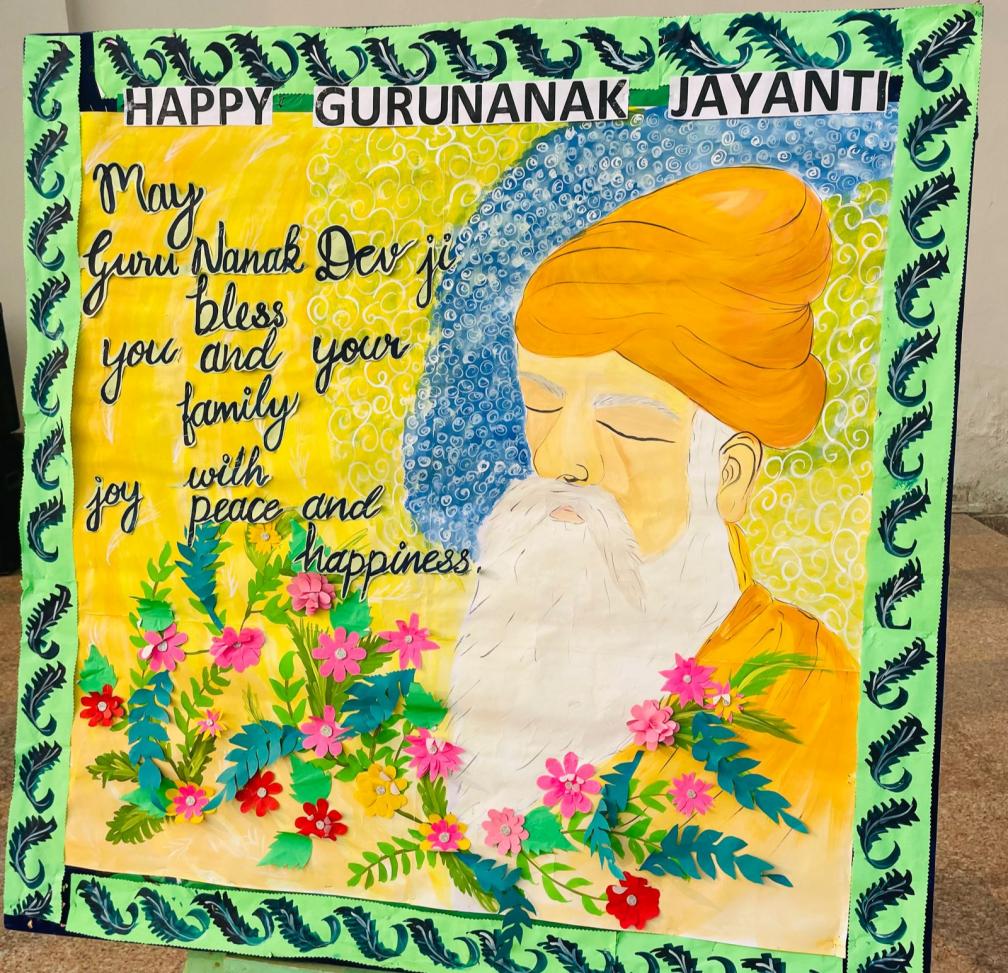 HAPPY GURUNANAK JAYANTI
May
Guru Nanak Dev ji
bless
you and your
family
with
joy peace and
happiness.